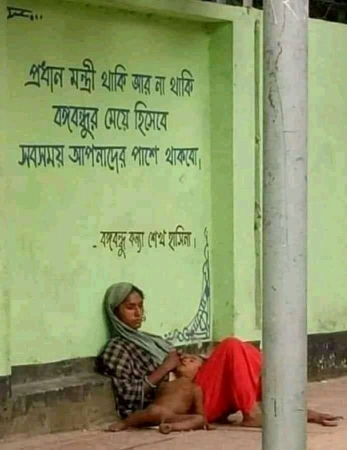 প্রধান মন্ত্রী থাকি আর না থাকি
বঙ্গবন্ধুর মেয়ে হিসেবে
সবসময় আপনাদের পাশে থাকবো।
- বঙ্গবন্ধু কন্যা শেখ হাসিনা।